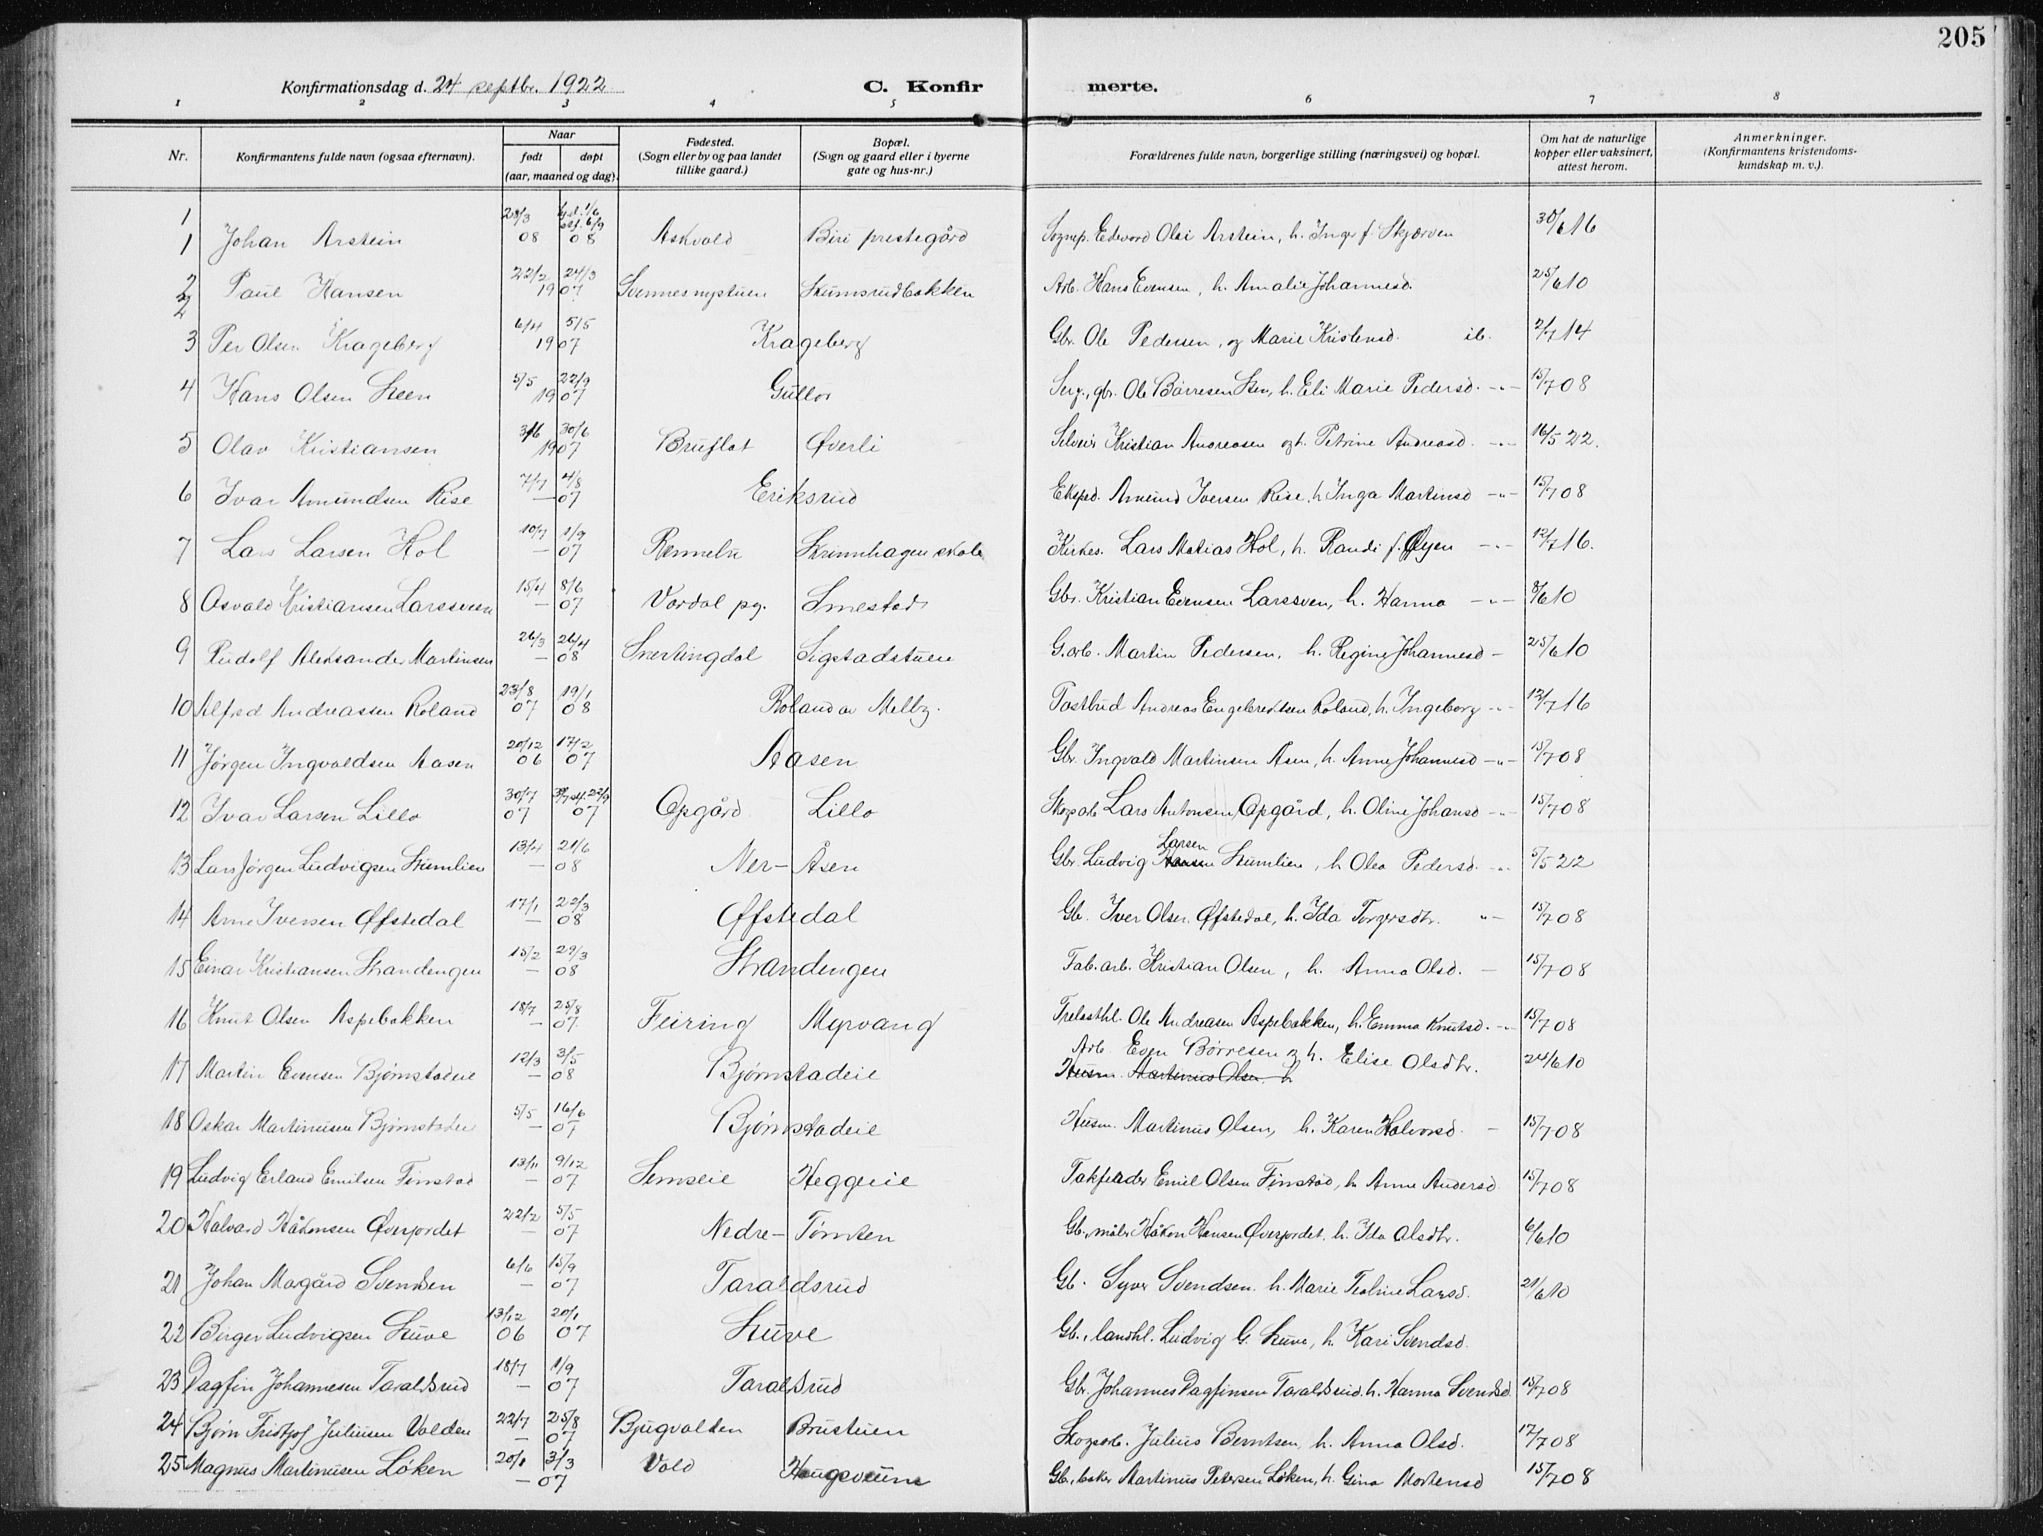 205
Konfirmationsdag d. 24 septbr. 1922.
C. Konfir
merte.
1 2 3 4 5 6 7 8
Nr. Konfirmantens fulde navn (ogsaa efternavn). Naar født døpt (aar, maaned og dag). Fødested. (Sogn eller by og paa landet tillike gaard.) Bopæl. (Sogn og gaard eller i byerne gate og hus-nr.) Forældrenes fulde navn, borgerlige stilling (næringsvei) og bopæl. Om hat de naturlige kopper eller vaksinert, attest herom. Anmerkninger. (Konfirmantens kristendoms-kundskap m. v.)
1 1 Johan Arstein 28/3 08 08 Askvold Biri prestegård Sognep. Edevard Olai Arstein, h. Inger f. Skjærven 30/6 16
2 2 Paul Hansen 22/2 24/3 1907 Svennesnystuen Skumsrudbakken Arb. Hans Evensen, h. Amalie Johannesd. 25/6 10
3 Per Olsen Krageberg 6/4 5/5 1907 Krageberg Gbr. Ole Pedersen, og Marie Kristensd. ib. 2/7 14
4 Hans Olsen Skeen 5/5 22/9 1907 Gullor Serg., gbr. Ole Børresen Sken, h. Eli Marie Pedersd. -"- 15/7 08
5 Olav Kristiansen 3/6 30/6 1907 Bruflat Øverli Selveier Kristian Andreasen og h. Petrine Andreasd. -"- 16/5 22.
6 Ivar Amundsen Rise 7/7 4/8 — 07 Eriksrud Eksped. Amund Iversen Rise, h Inga Martinsd -"- 15/7 08
7 Lars Larsen Hol 10/7 1/9 — 07 Rennebu Skrinnhagen skole Kirkes. Lars Matias Hol, h. Randi f. Øyen -"- 12/7 16.
8 Osvald Kristiansen Larssveen 15/4 8/6 — 07 Vardal pg. Smestad Gbr. Kristian Evensen Larssven, h. Hanna -"- 8/6 10
9 Rudolf Aleksander Martinsen 26/3 26/4 — 08 Snertingdal Sigstadstuen G.arb. Martin Pedersen, h. Regine Johannesd - 25/6 10
10 Alfred Andreassen Roland 23/8 07 19/1 08 Roland av Melby. Postbud Andreas Engebretsen Roland, h. Ingeborg -"- 12/7 16
11 Jørgen Ingvaldsen Aasen 20/12 06 17/2 07 Aasen Gbr. Ingvald Martinsen Åsen, h. Anne Johannesd -"- 15/7 08
12 Ivar Larsen Lillo 30/7 07 07 Opgård Lillo Skogsarb Lars Antonsen Opgård, h. Oline Johansd -"- 15/7 08
13 Lars Jørgen Ludvigsen Skumlien 13/4 21/6 — 08 Ner-Åsen Gbr. Ludvig Larsen Skumlien, h Olea Pedersd. -"- 5/5 22
14 Arne Iversen Øfstedal 17/1 22/3 — 08 Øffstedal Gb. Iver Olsen Øfstedal, h. Ida Torgersdtr. "- 15/7 08
15 Einar Kristiansen Strandengen 15/2 29/3 — 08 Strandengen Fab.arb. Kristian Olsen, h. Anna Olsd. - 15/7 08
16 Knut Olsen Aspebakken 18/7 25/8 — 07 Feiring Myrvang Trelasthl. Ole Andreasen Aspebakken, h. Emma Knutsd. -"- 15/7 08
17 Martin Evensen Bjørnstadeie 12/3 3/5 — 08 Bjørnstadeie Arb. Even Børresen og h. Elise Olsdtr. 24/6 10
Husm. Martinus Olsen, h
18 Oskar Martinusen Bjørnstadeie 5/5 16/6 — 07 Bjørnstadeie Husm. Martinus Olsen, h. Karen Halvorsd. - 15/7 08
19 Ludvig Erland Emilsen Finstad 13/11 9/12 — 07 Semseie Heggeie Takfeader Emil Olsen Finstad, h. Anne Andersd 15/7 08
20 Halvard Håkonsen Øverjordet 22/2 5/5 — 07 Nedre-Tømten Gb., måler Håkon Hansen Øverjordet, h. Ida Olsdtr. 6/6 10
21 Johan Margård Svendsen 6/6 15/9 — 07 Taraldsrud Gb. Syver Svendsen. h. Marie Teoline Larsd. 21/6 10
22 Birger Ludvigsen Skuve 13/12 06 20/1 07 Skuve Gb., landhl. Ludvig G. Skuve, h. Kari Svendsd.
23 Dagfin Johannesen Taraldsrud 18/7 1/9 — 07 Taraldsrud Gb. Johannes Dagfinsen Taraldsrud. h. Hanna Svendsd 15/7 08
24 Bjørn Fridtjof Juliusen Volden 22/7 25/8 — 07 Bjugvolden Brustuen Skogsarb. Julius Berntsen, h. Anna Olsd. 17/7 08
25 Magnus Martinusen Løken 20/1 3/3 — 07 Vold Haugsveum Gb., baker Martinus Petersen Løken, h. Gina Mortensd 15/7 08